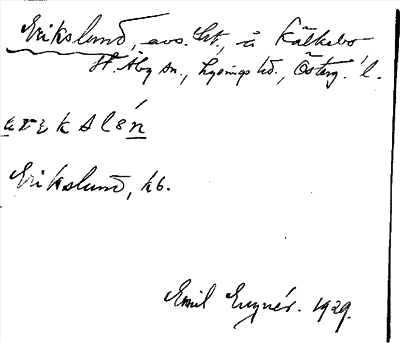 Erikslund, avs. lht., i Kälkebo
St. Åby sn., Lysings hd., Österg. l.
Erikslund, kb.
Emil Engnér. 1929.